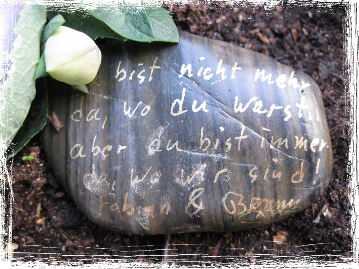 bist nicht mehr
da, wo du warst!
aber du bist immer
da, wo wir sind!
&